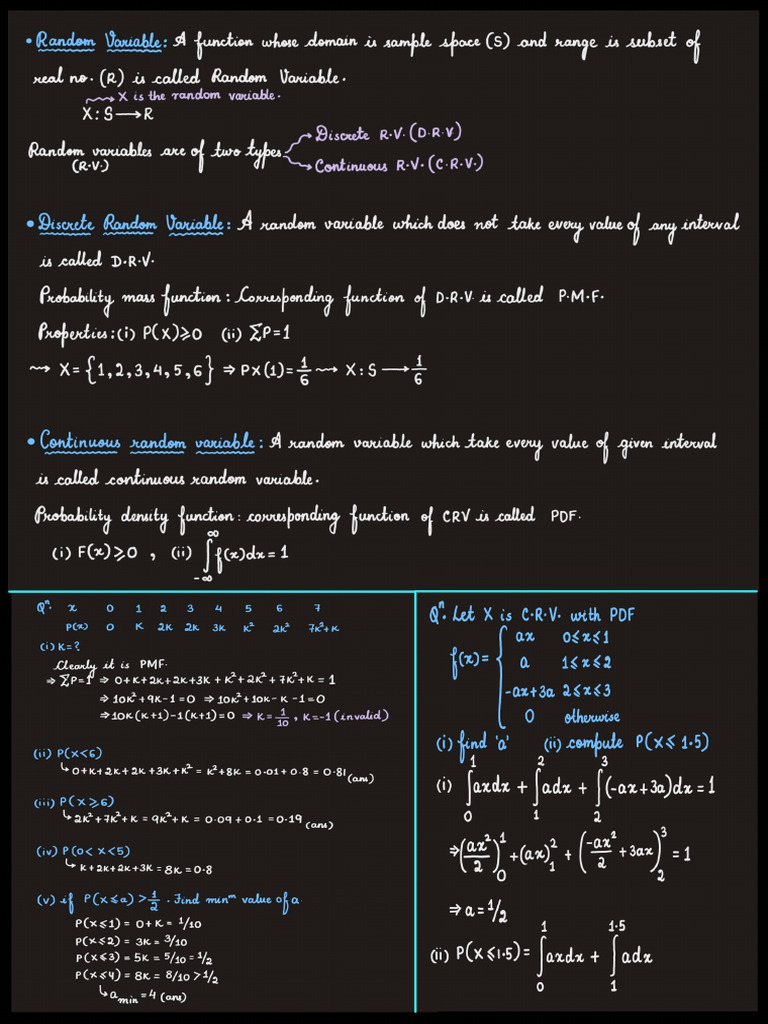 • Random Variable: A function whose domain is sample space (S) and range is subset of
real no. (R) is called Random Variable.
X is the random variable.
X : S → R
Random variables are of two types
(R.V.)
Discrete R.V. (D.R.V)
Continuous R.V. (C.R.V.)
• Discrete Random Variable: A random variable which does not take every value of any interval
is called D.R.V.
Probability mass function: Corresponding function of D.R.V. is called P.M.F.
Properties: (i) P(X)≥0 (ii) ΣP=1
⇝ X= {1,2,3,4,5,6} ⇒ PX(1)= 1/6 ⇝ X:S → 1/6
• Continuous random variable: A random variable which take every value of given interval
is called continuous random variable.
Probability density function: corresponding function of CRV is called PDF.
(i) F(x)≥0 , (ii) ∫_{-∞}^{∞} f(x)dx = 1
Qⁿ. x 0 1 2 3 4 5 6 7
P(x) 0 K 2K 2K 3K K² 2K² 7K²+K
(i) K=?
Clearly it is PMF.
⇒ ΣP=1 ⇒ 0+K+2K+2K+3K+K²+2K²+7K²+K = 1
⇒ 10K²+9K-1=0 ⇒ 10K²+10K-K-1=0
⇒ 10K(K+1)-1(K+1)=0 ⇒ K= 1/10 , K=-1 (invalid)
(ii) P(X<6)
↳ 0+K+2K+2K+3K+K² = K²+8K = 0.01+0.8 = 0.81 (ans)
(iii) P(X≥6)
↳ 2K²+7K²+K = 9K²+K = 0.09+0.1 = 0.19 (ans)
(iv) P(0<X<5)
↳ K+2K+2K+3K = 8K = 0.8
(v) if P(X≤a) > 1/2 . Find minᵐ value of a.
P(X≤1) = 0+K = 1/10
P(X≤2) = 3K = 3/10
P(X≤3) = 5K = 5/10 = 1/2
P(X≤4) = 8K = 8/10 > 1/2
↳ a_min = 4 (ans)
Qⁿ. Let X is C.R.V. with PDF
f(x)= { ax 0≤x≤1
a 1≤x≤2
-ax+3a 2≤x≤3
0 otherwise
(i) find 'a' (ii) compute P(X≤1.5)
(i) ∫_0^1 axdx + ∫_1^2 adx + ∫_2^3 (-ax+3a)dx = 1
⇒ (ax²/2)_0^1 + (ax)_1^2 + (-ax²/2 + 3ax)_2^3 = 1
⇒ a = 1/2
(ii) P(X≤1.5) = ∫_0^1 axdx + ∫_1^1.5 adx